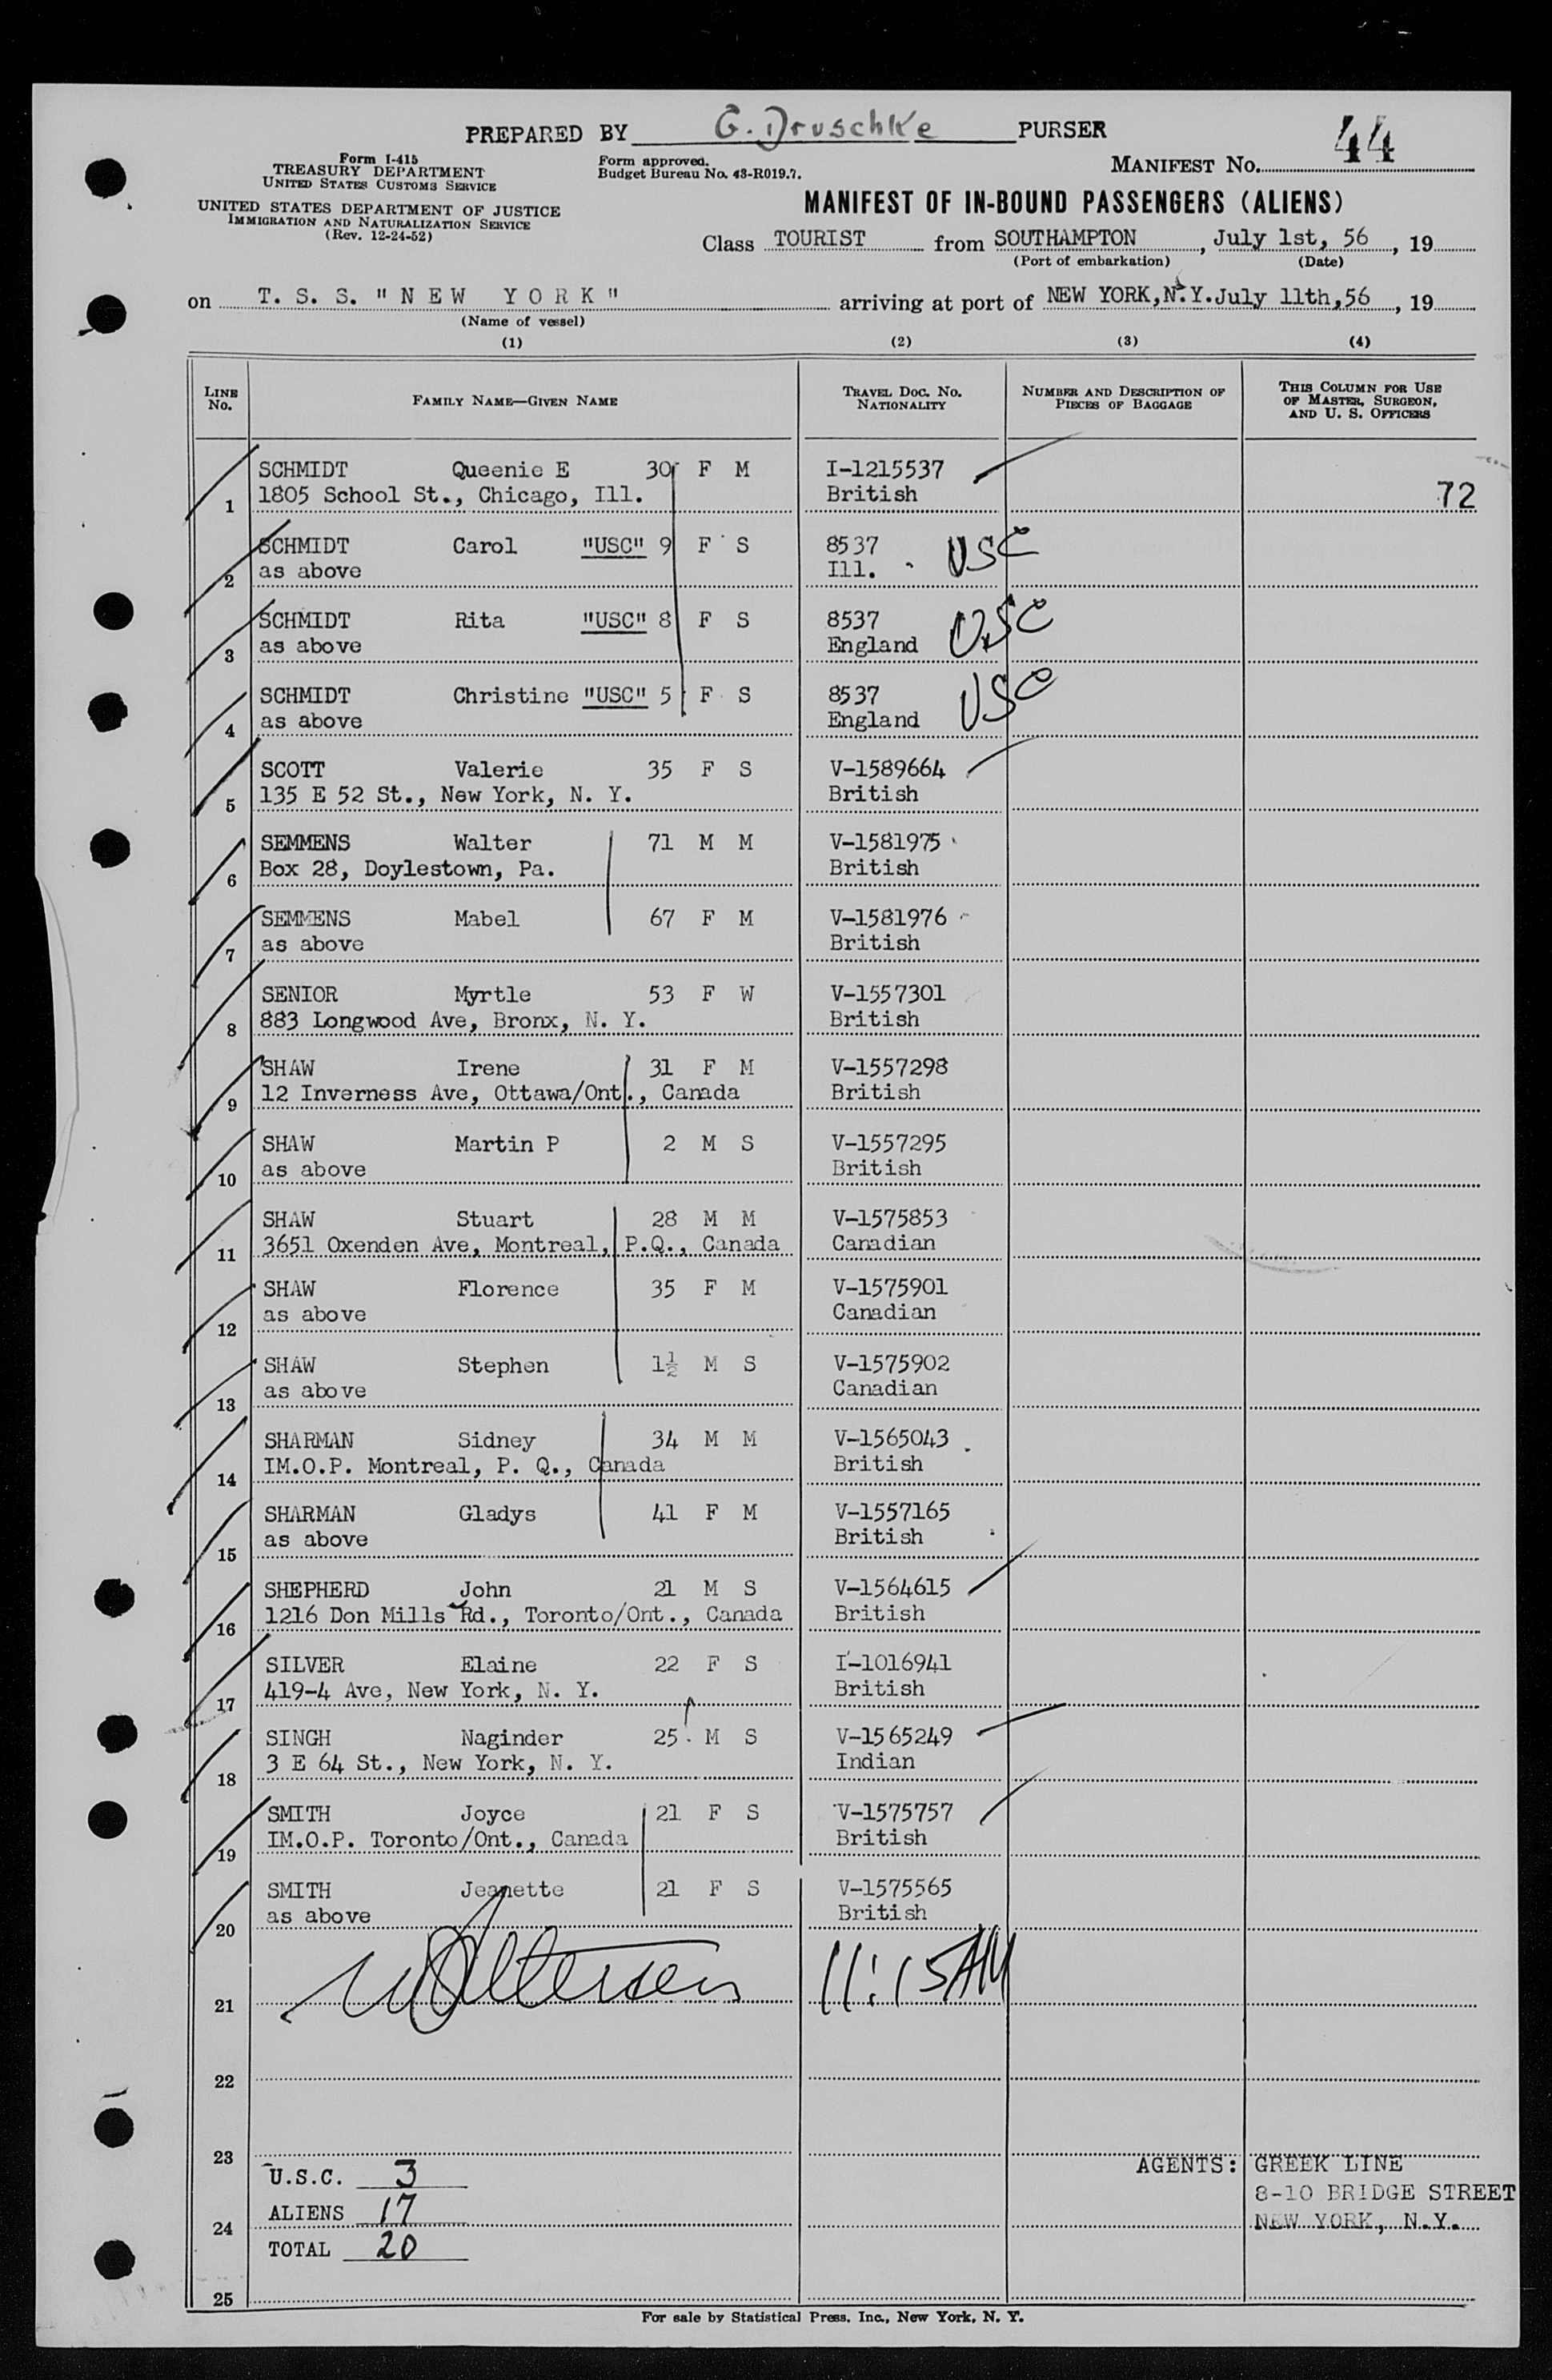 PREPARED BY G. Druschke PURSER
Form I-415
TREASURY DEPARTMENT
UNITED STATES CUSTOMS SERVICE
UNITED STATES DEPARTMENT OF JUSTICE
IMMIGRATION AND NATURALIZATION SERVICE
(Rev. 12-24-52)
Form approved.
Budget Bureau No. 43-R019.7.
MANIFEST No. 44
MANIFEST OF IN-BOUND PASSENGERS (ALIENS)
Class TOURIST from SOUTHAMPTON, July 1st, 56, 19
(Port of embarkation) (Date)
on T. S. S. "NEW YORK" arriving at port of NEW YORK, N.Y. July 11th, 56, 19
(Name of vessel)
(1) (2) (3) (4)
LINE No. FAMILY NAME—GIVEN NAME TRAVEL DOC. No. NATIONALITY NUMBER AND DESCRIPTION OF PIECES OF BAGGAGE THIS COLUMN FOR USE OF MASTER, SURGEON, AND U. S. OFFICERS
SCHMIDT Queenie E 30 F M I-1215537
1 1805 School St., Chicago, Ill. British 72
SCHMIDT Carol "USC" 9 F S 8537 USC
2 as above Ill.
SCHMIDT Rita "USC" 8 F S 8537 USC
3 as above England
SCHMIDT Christine "USC" 5 F S 8537 USC
4 as above England
SCOTT Valerie 35 F S V-1589664
5 135 E 52 St., New York, N. Y. British
SEMMENS Walter 71 M M V-1581975
6 Box 28, Doylestown, Pa. British
SEMMENS Mabel 67 F M V-1581976
7 as above British
SENIOR Myrtle 53 F W V-1557301
8 883 Longwood Ave, Bronx, N. Y. British
SHAW Irene 31 F M V-1557298
9 12 Inverness Ave, Ottawa/Ont., Canada British
SHAW Martin P 2 M S V-1557295
10 as above British
SHAW Stuart 28 M M V-1575853
11 3651 Oxenden Ave, Montreal, P.Q., Canada Canadian
SHAW Florence 35 F M V-1575901
12 as above Canadian
SHAW Stephen 1½ M S V-1575902
13 as above Canadian
SHARMAN Sidney 34 M M V-1565043
14 IM.O.P. Montreal, P. Q., Canada British
SHARMAN Gladys 41 F M V-1557165
15 as above British
SHEPHERD John 21 M S V-1564615
16 1216 Don Mills Rd., Toronto/Ont., Canada British
SILVER Elaine 22 F S I-1016941
17 419-4 Ave, New York, N. Y. British
SINGH Naginder 25 M S V-1565249
18 3 E 64 St., New York, N. Y. Indian
SMITH Joyce 21 F S V-1575757
19 IM.O.P. Toronto/Ont., Canada British
SMITH Jeanette 21 F S V-1575565
20 as above British
21 11:15AM
22
23
U.S.C. 3 AGENTS: GREEK LINE
8-10 BRIDGE STREET
ALIENS 17 NEW YORK, N.Y.
24
TOTAL 20
25
For sale by Statistical Press, Inc., New York, N. Y.